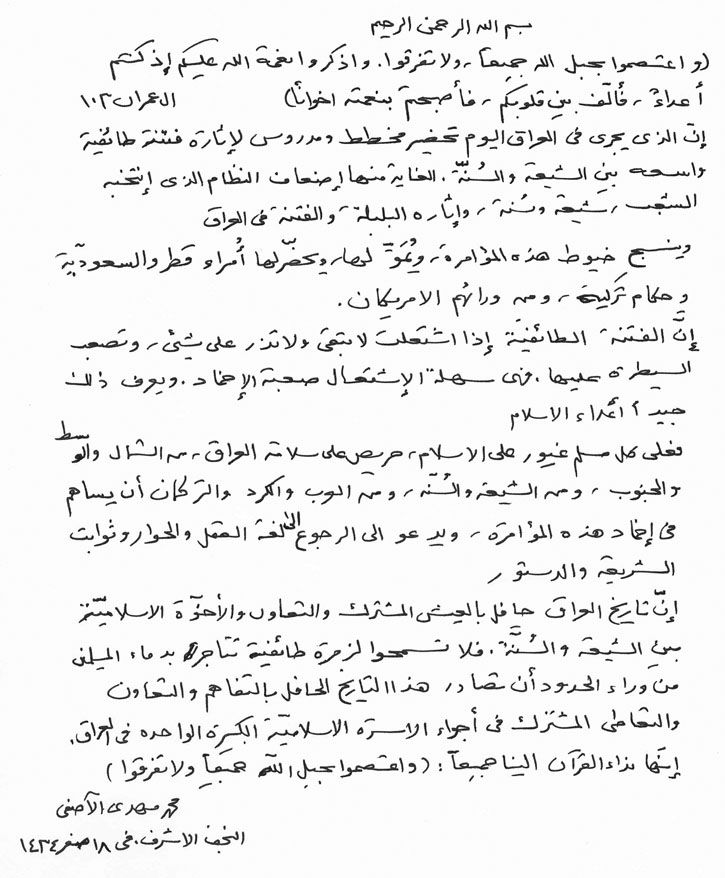 بسم الله الرحمن الرحيم
(واعتصموا بحبل الله جميعاً، ولا تفرقوا. واذكروا نعمة الله عليكم إذ كنتم
أعداءً، فألّف بين قلوبكم، فأصبحتم بنعمته اخواناً) ال عمران ١٠٢
إنّ الذي يجري في العراق اليوم تحضير مخطط ومدروس لإثارة فتنة طائفية
واسعه بين الشيعة والسُنّة. الغاية منها إضعاف النظام الذي إنتخبه
الشعب، شيعة وسُنة، وإثاره البلبلة والفتنة في العراق
وينسج خيوط هذه المؤامرة، ويُموّل لها، ويحضّر لها أُمراء قطر والسعوديّة
وحكام تركية، ومن ورائهم الامريكان.
إنَّ الفتنة الطائفيّة إذا اشتعلت لا تبقي ولا تذر على شيئ، وتصعب
السيطرة عليها. فهي سهلة الإشتعال صعبة الإخماد. ويعرف ذلك
جيداً أعداء الاسلام
فعلى كل مسلم غيور على الاسلام، حريص على سلامة العراق، من الشمال والوسط
والجنوب، ومن الشيعة والسُنّه، ومن العرب والكرد والتركمان أن يساهم
في إخماد هذه المؤامرة، ويدعو الى الرجوع الى لغة العقل والحوار وثوابت
الشريعة والدستور
إنّ تاريخ العراق حافل بالعيش المشترك والتعاون والأخوّة الاسلاميّة
بين الشيعة والسُنَّة. فلا تسمحوا لزمرة طائفية تتاجر بدماء المسلمين
من وراء الحدود أن تصادر هذا التاريخ الحافل بالتفاهم والتعاون
والتعاطي المشترك في أجواء الاسرة الاسلاميّة الكبيرة الواحده في العراق.
إنّها نداء القرآن الينا جميعاً: (واعتصموا بحبل الله جميعاً ولا تفرقوا)
محمد مهدي الآصفي
النجف الاشرف. في ١٨ صفر ١٤٣٤